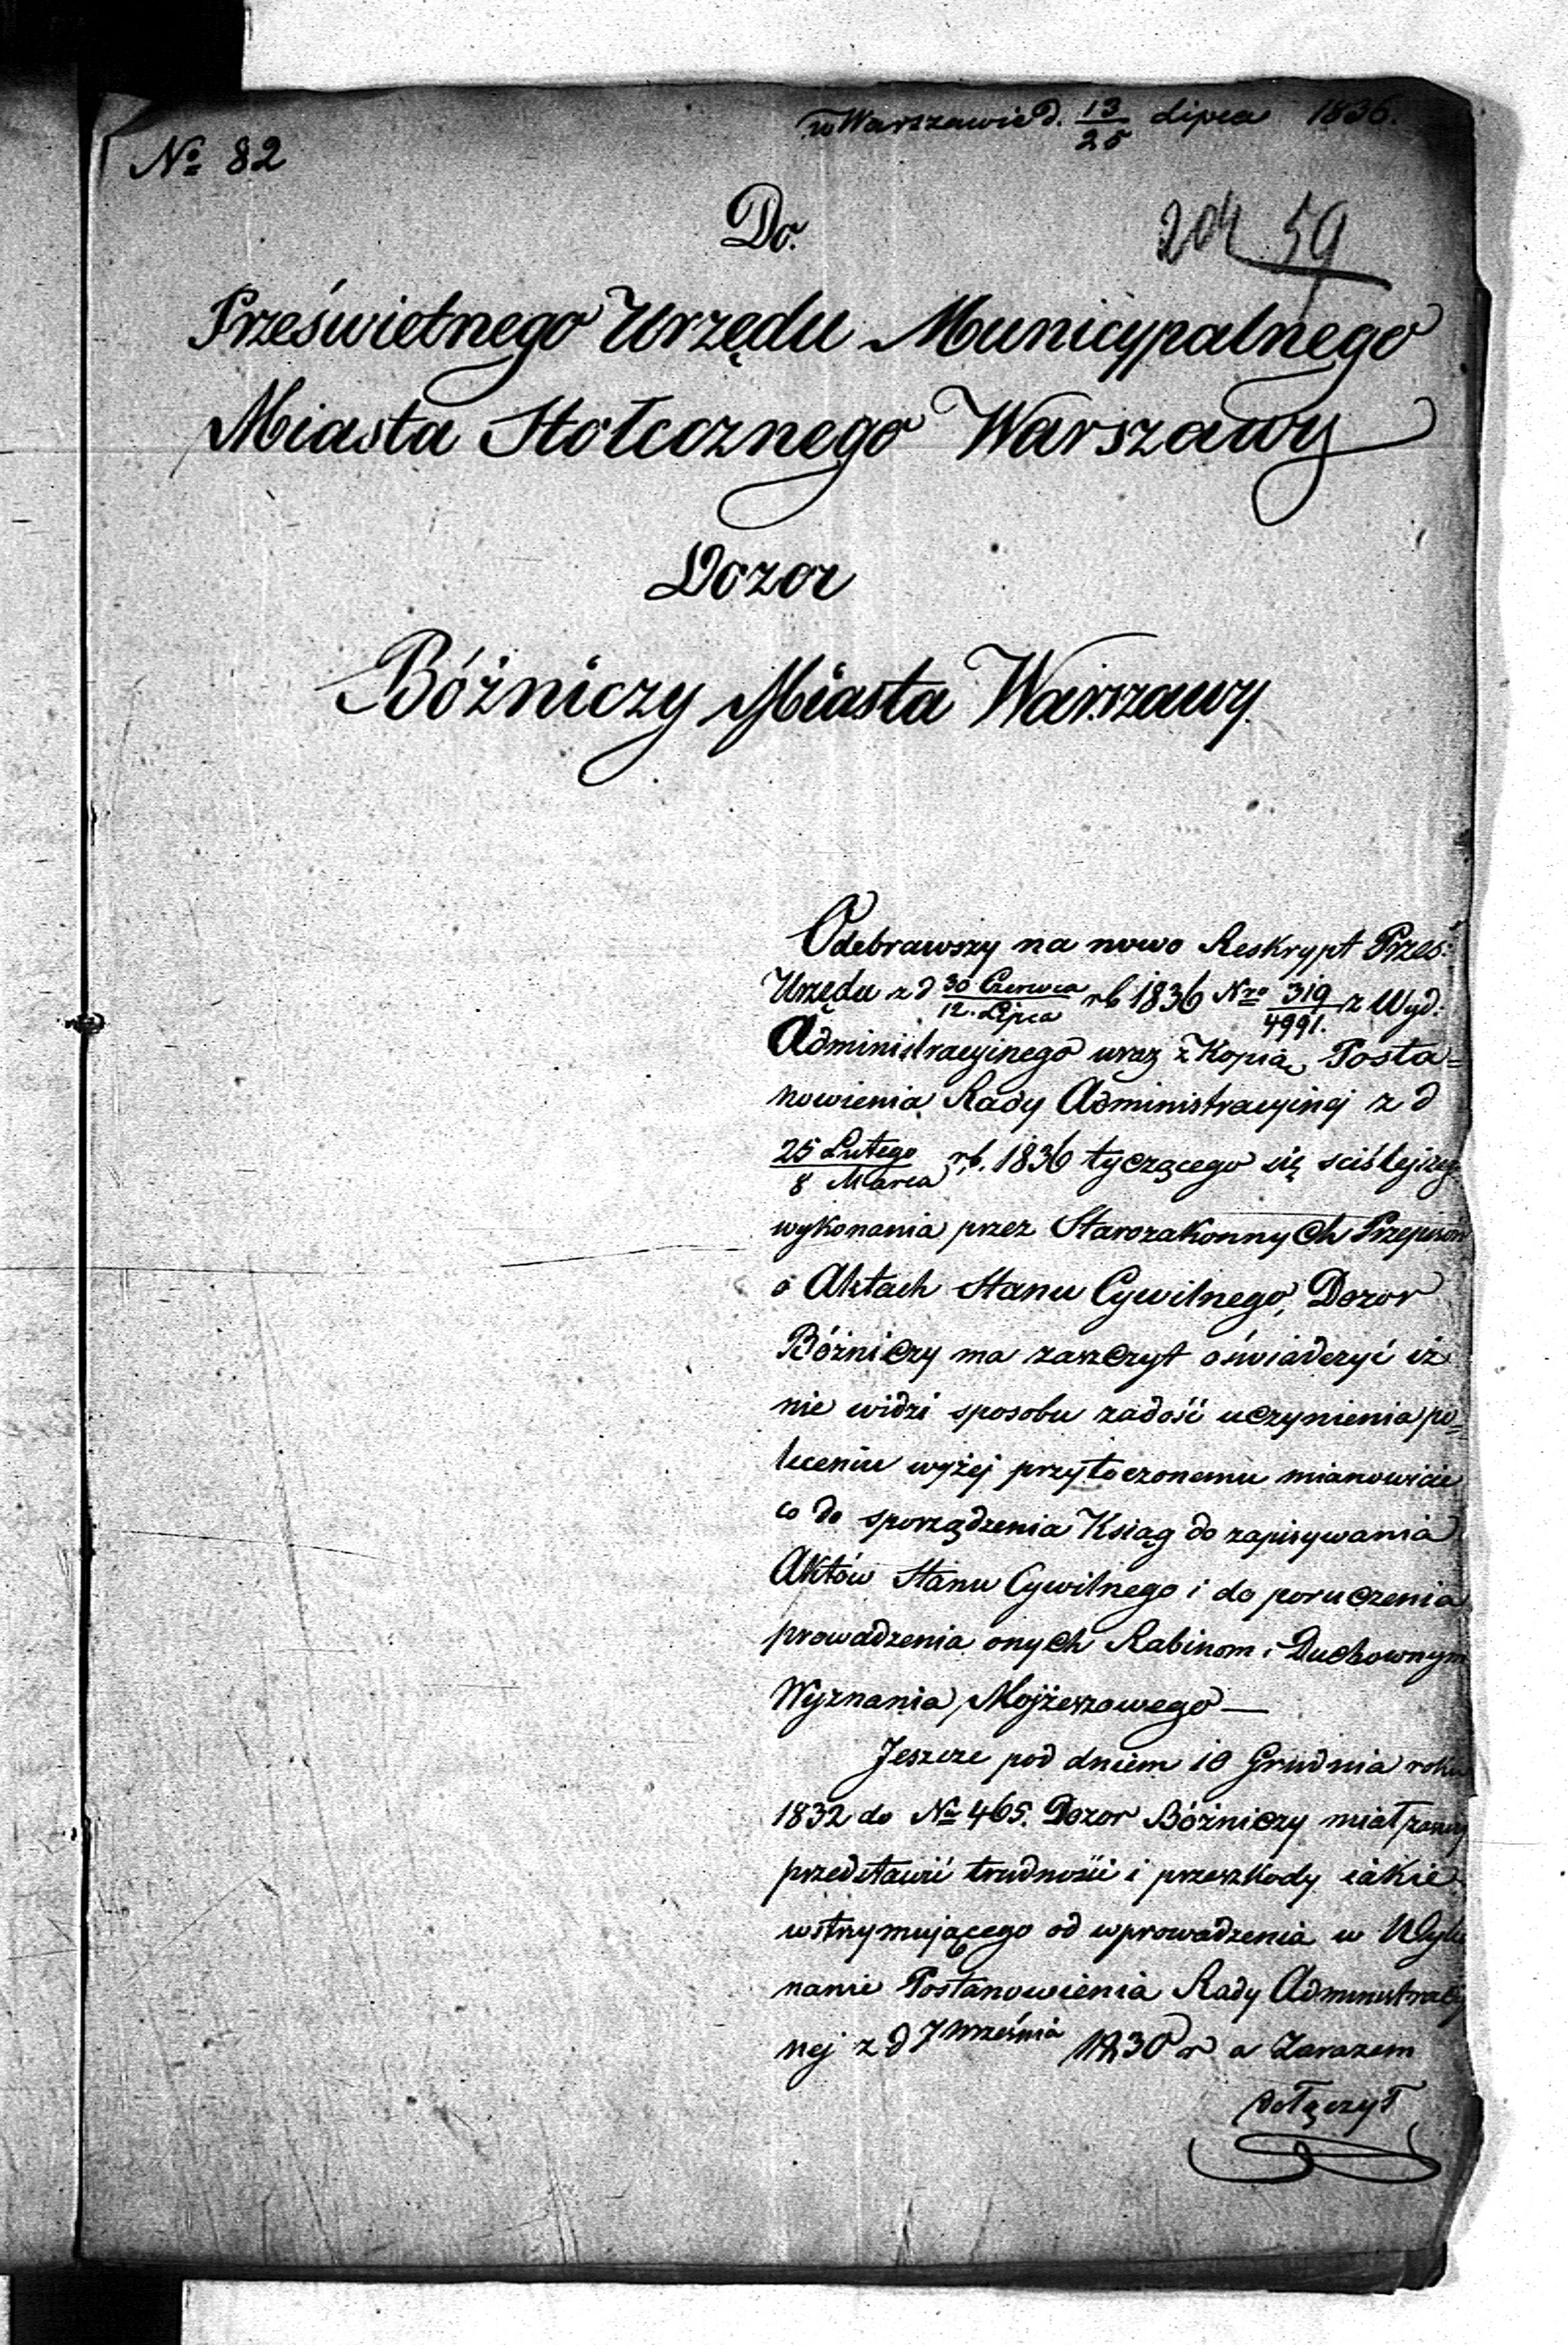 w Warszawie d. 13/25 Lipca 1836.
No 82
Do.
204 59
Prześwietnego Urzędu Municypalnego
Miasta Stołecznego Warszawy
Dozor
Bóżniczy Miasta Warszawy
Odebrawszy na nowo Reskrypt Prześ:
Urzędu z d 30 Czerwca/12. Lipca rb 1836 Nro 319/4991. z Wyd:
Administracyinego wraz z Kopią Posta=
nowienia Rady Administracyinej z d
25 Lutego/8 Marca rb. 1836 tyczącego się sciślejszego
wykonania przez Starozakonnych Przepisow
o Aktach Stanu Cywilnego, Dozor
Bóżniczy ma zaszczyt oświadczyć iż
nie widzi sposobu zadość uczynienia po=
leceniu wyżej przytoczonemu mianowicie
co do sporządzenia Ksiąg do zapisywania
Aktów Stanu Cywilnego i do poruczenia
prowadzenia onych Rabinom i Duchownym
Wyznania Mojżeszowego —
Jeszcze pod dniem 10 Grudnia roku
1832 do No 465. Dozor Bóżniczy miał
przedstawić trudności i przeszkody iakie
wstrzymującego od wprowadzenia w Wyko
nanie Postanowienia Rady Administracyi
nej z d 7 Września 1830 r a Zarazem
dołączył